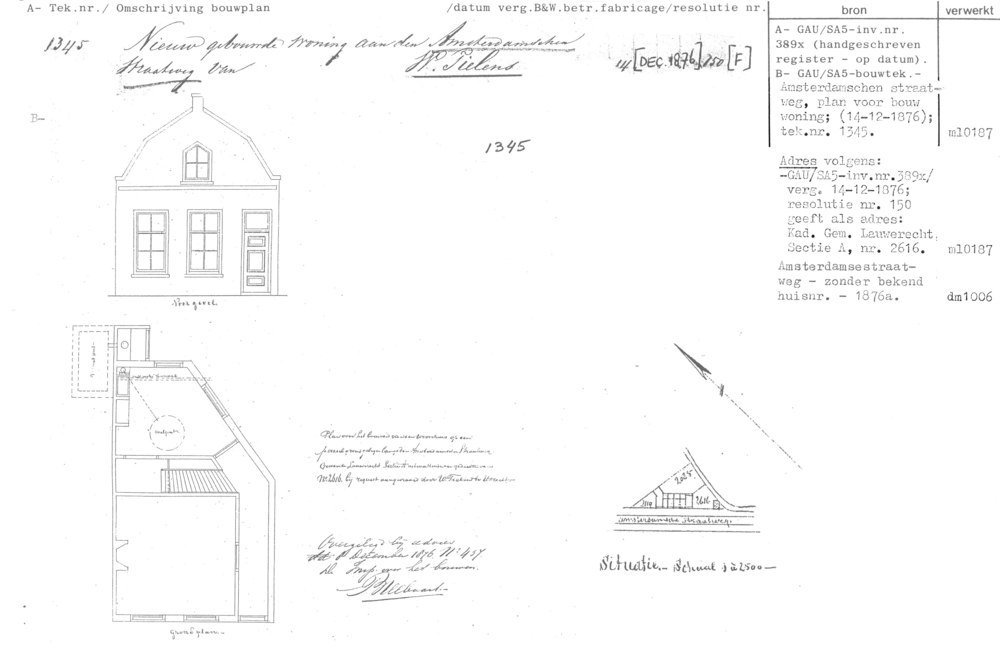 A- Tek.nr./ Omschrijving bouwplan
/datum verg.B&W.betr.fabricage/resolutie nr.
bron
verwerkt
1345 Nieuw gebouwde woning aan den Amsterdamschen
Straatweg van W. Tielens
14 [DEC. 1876] 150 [F]
A- GAU/SA5-inv.nr.
389x (handgeschreven
register - op datum).
B- GAU/SA5-bouwtek.-
Amsterdamschen straat-
weg, plan voor bouw
woning; (14-12-1876);
tek.nr. 1345.
ml0187
B-
1345
Adres volgens:
-GAU/SA5-inv.nr.389x/
verg. 14-12-1876;
resolutie nr. 150
geeft als adres:
Kad. Gem. Lauwerecht,
Sectie A, nr. 2616.
ml0187
Amsterdamsestraat-
weg - zonder bekend
huisnr. - 1876a.
dm1006
Voorgevel.
Plan voor het bouwen van een woonhuis op een
No 2616.
Overgelegd bij advies
December 1876 No 457
De Insp. over het bouwen.
2025
2616
Amsterdamsche straatweg.
Situatie.- Schaal 1 à 2500-
Grondplan.-